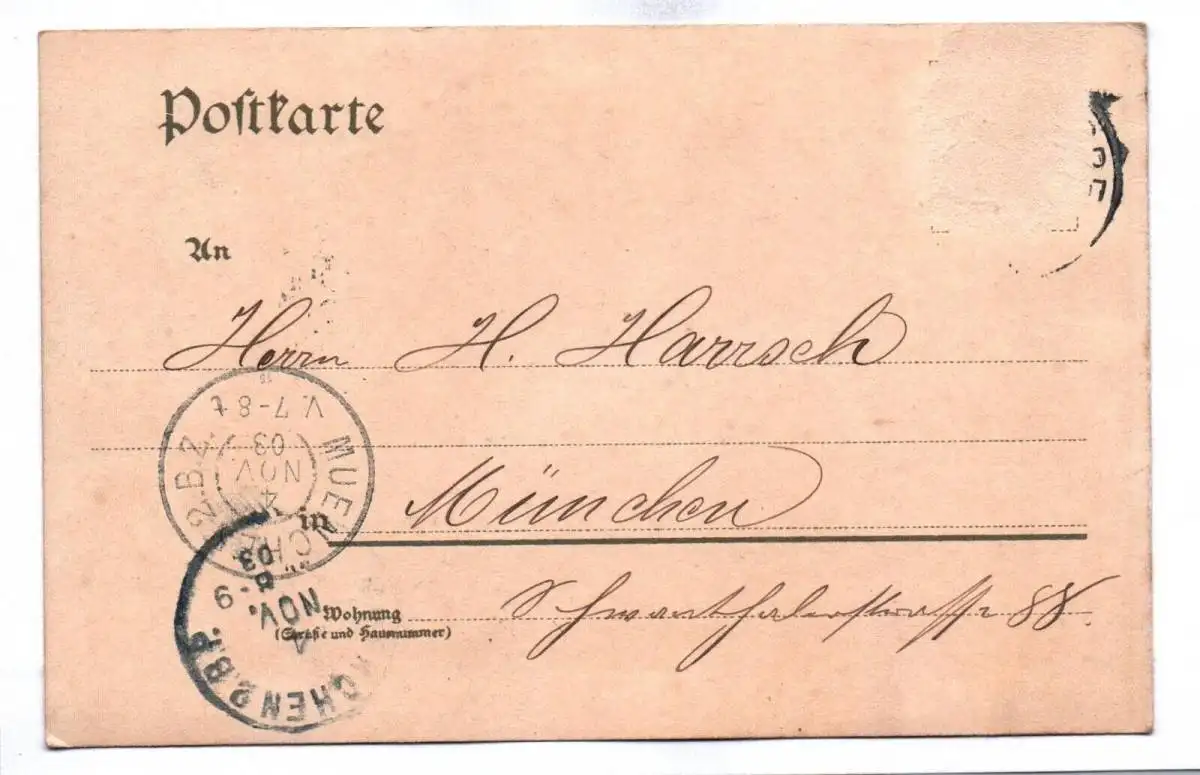 Postkarte
An
Herrn H. Harrsch
in München
Wohnung
(Straße und Hausnummer)
Schwanthalerstrasse 88.
MUENCHEN 2.B.Z.
4
NOV
03
V. 7-8
CHEN 2 B.P.
4
NOV.
8-9
03